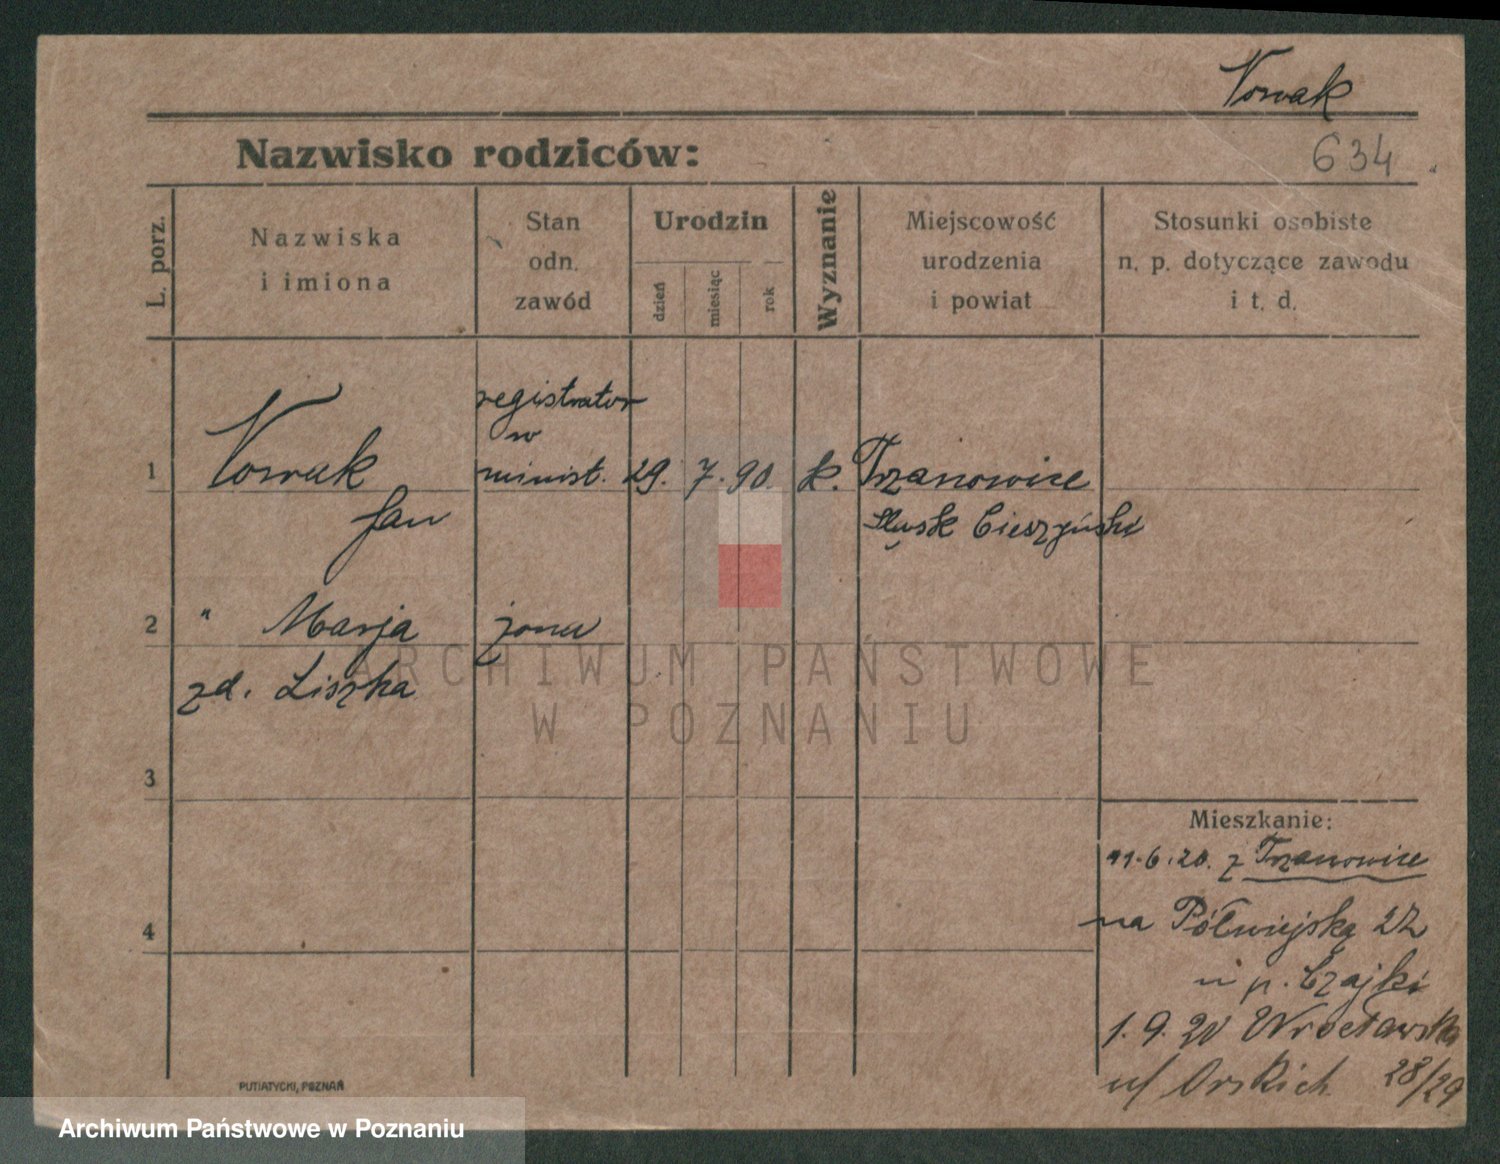 Nowak
Nazwisko rodziców:
634
L. porz.
Nazwiska
i imiona
Stan
odn.
zawód
Urodzin
dzień
miesiąc
rok
Wyznanie
Miejscowość
urodzenia
i powiat
Stosunki osobiste
n. p. dotyczące zawodu
i t. d.
registrator
w
1 Nowak minist. 29. 7. 90. k. Trzanowice
Jan Śląsk Cieszyński
2 " Marja żona
zd. Liszka
ARCHIWUM PAŃSTWOWE
W POZNANIU
3
Mieszkanie:
11.6.20. z Trzanowice
4
na Półwiejską 22
u p. Czajki
1.9.20 Wrocławska
u/ Orskich 28/29
PUTIATYCKI, POZNAŃ
Archiwum Państwowe w Poznaniu